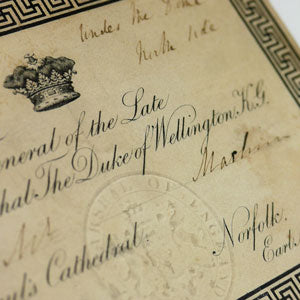 Under the Dome
North side
Funeral of the Late
shal The Duke of Wellington K.G.
ul's Cathedral.
Norfolk.
Earl